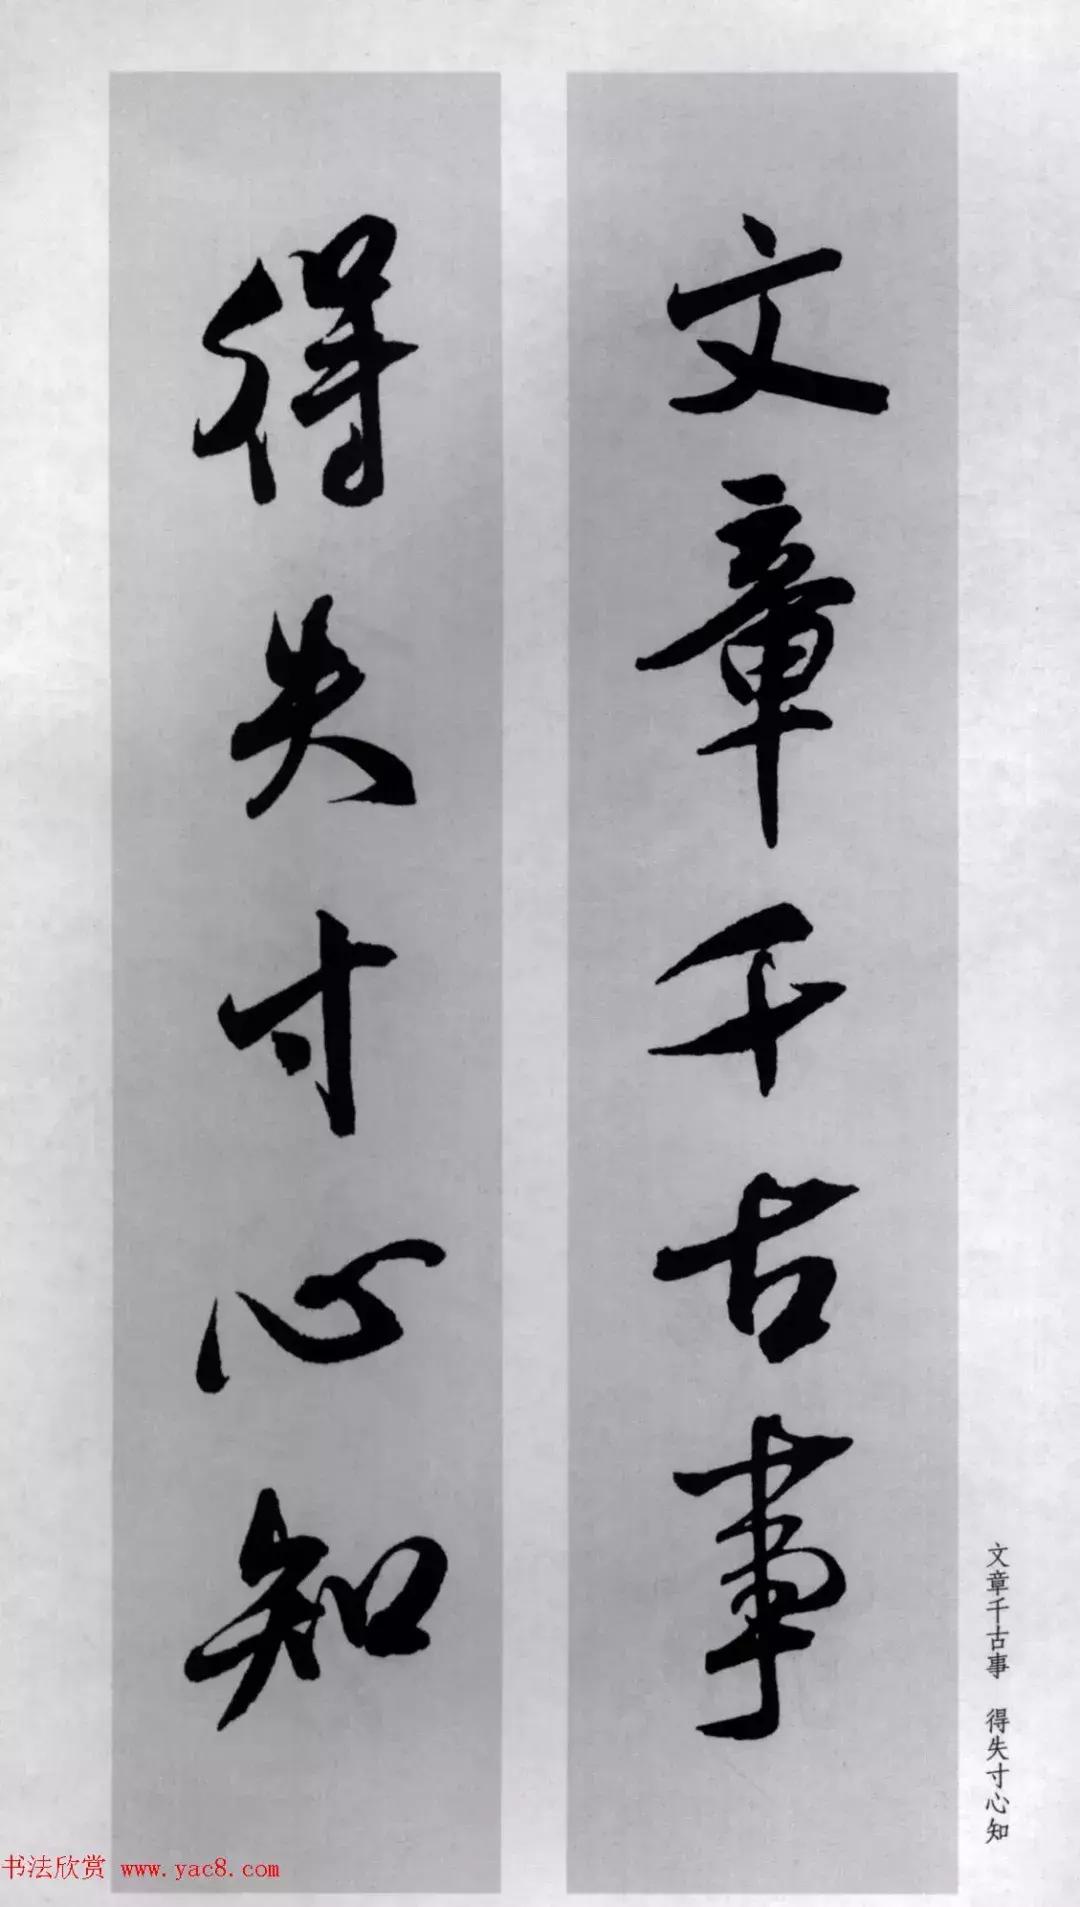 文章千古事
得失寸心知
文章千古事　得失寸心知
书法欣赏 www.yac8.com